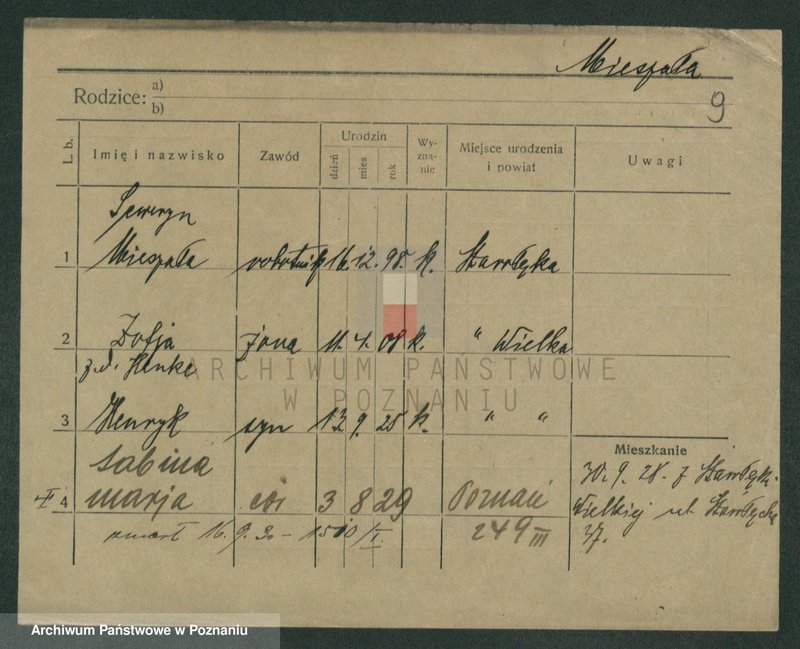 Mieszała
Rodzice: a)
b)
9
L. b.
Imię i nazwisko
Zawód
Urodzin
dzień mies. rok
Wy-
zna-
nie
Miejsce urodzenia
i powiat
Uwagi
Seweryn
1 Mieszała robotnik 16. 12. 98. k. Starołęka
2 Zofja żona 11. 4. 08 k. " Wielka
z d. Henke
3 Henryk syn 13 9. 28 k. " "
Sabina
4 Marja cór 3 8 29 Poznań
zmarł 16. 9. 30 – 1510/I. 249 III
Mieszkanie
30. 9. 28. z Starołęki
Wielkiej ul. Starołęcka
37.
ARCHIWUM PAŃSTWOWE
W POZNANIU
Archiwum Państwowe w Poznaniu